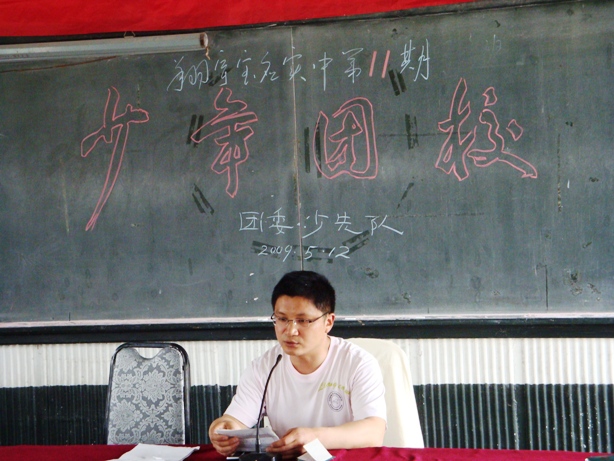 翔宇宝应实中第11期
少年团校
团委·少先队
2009.5.12